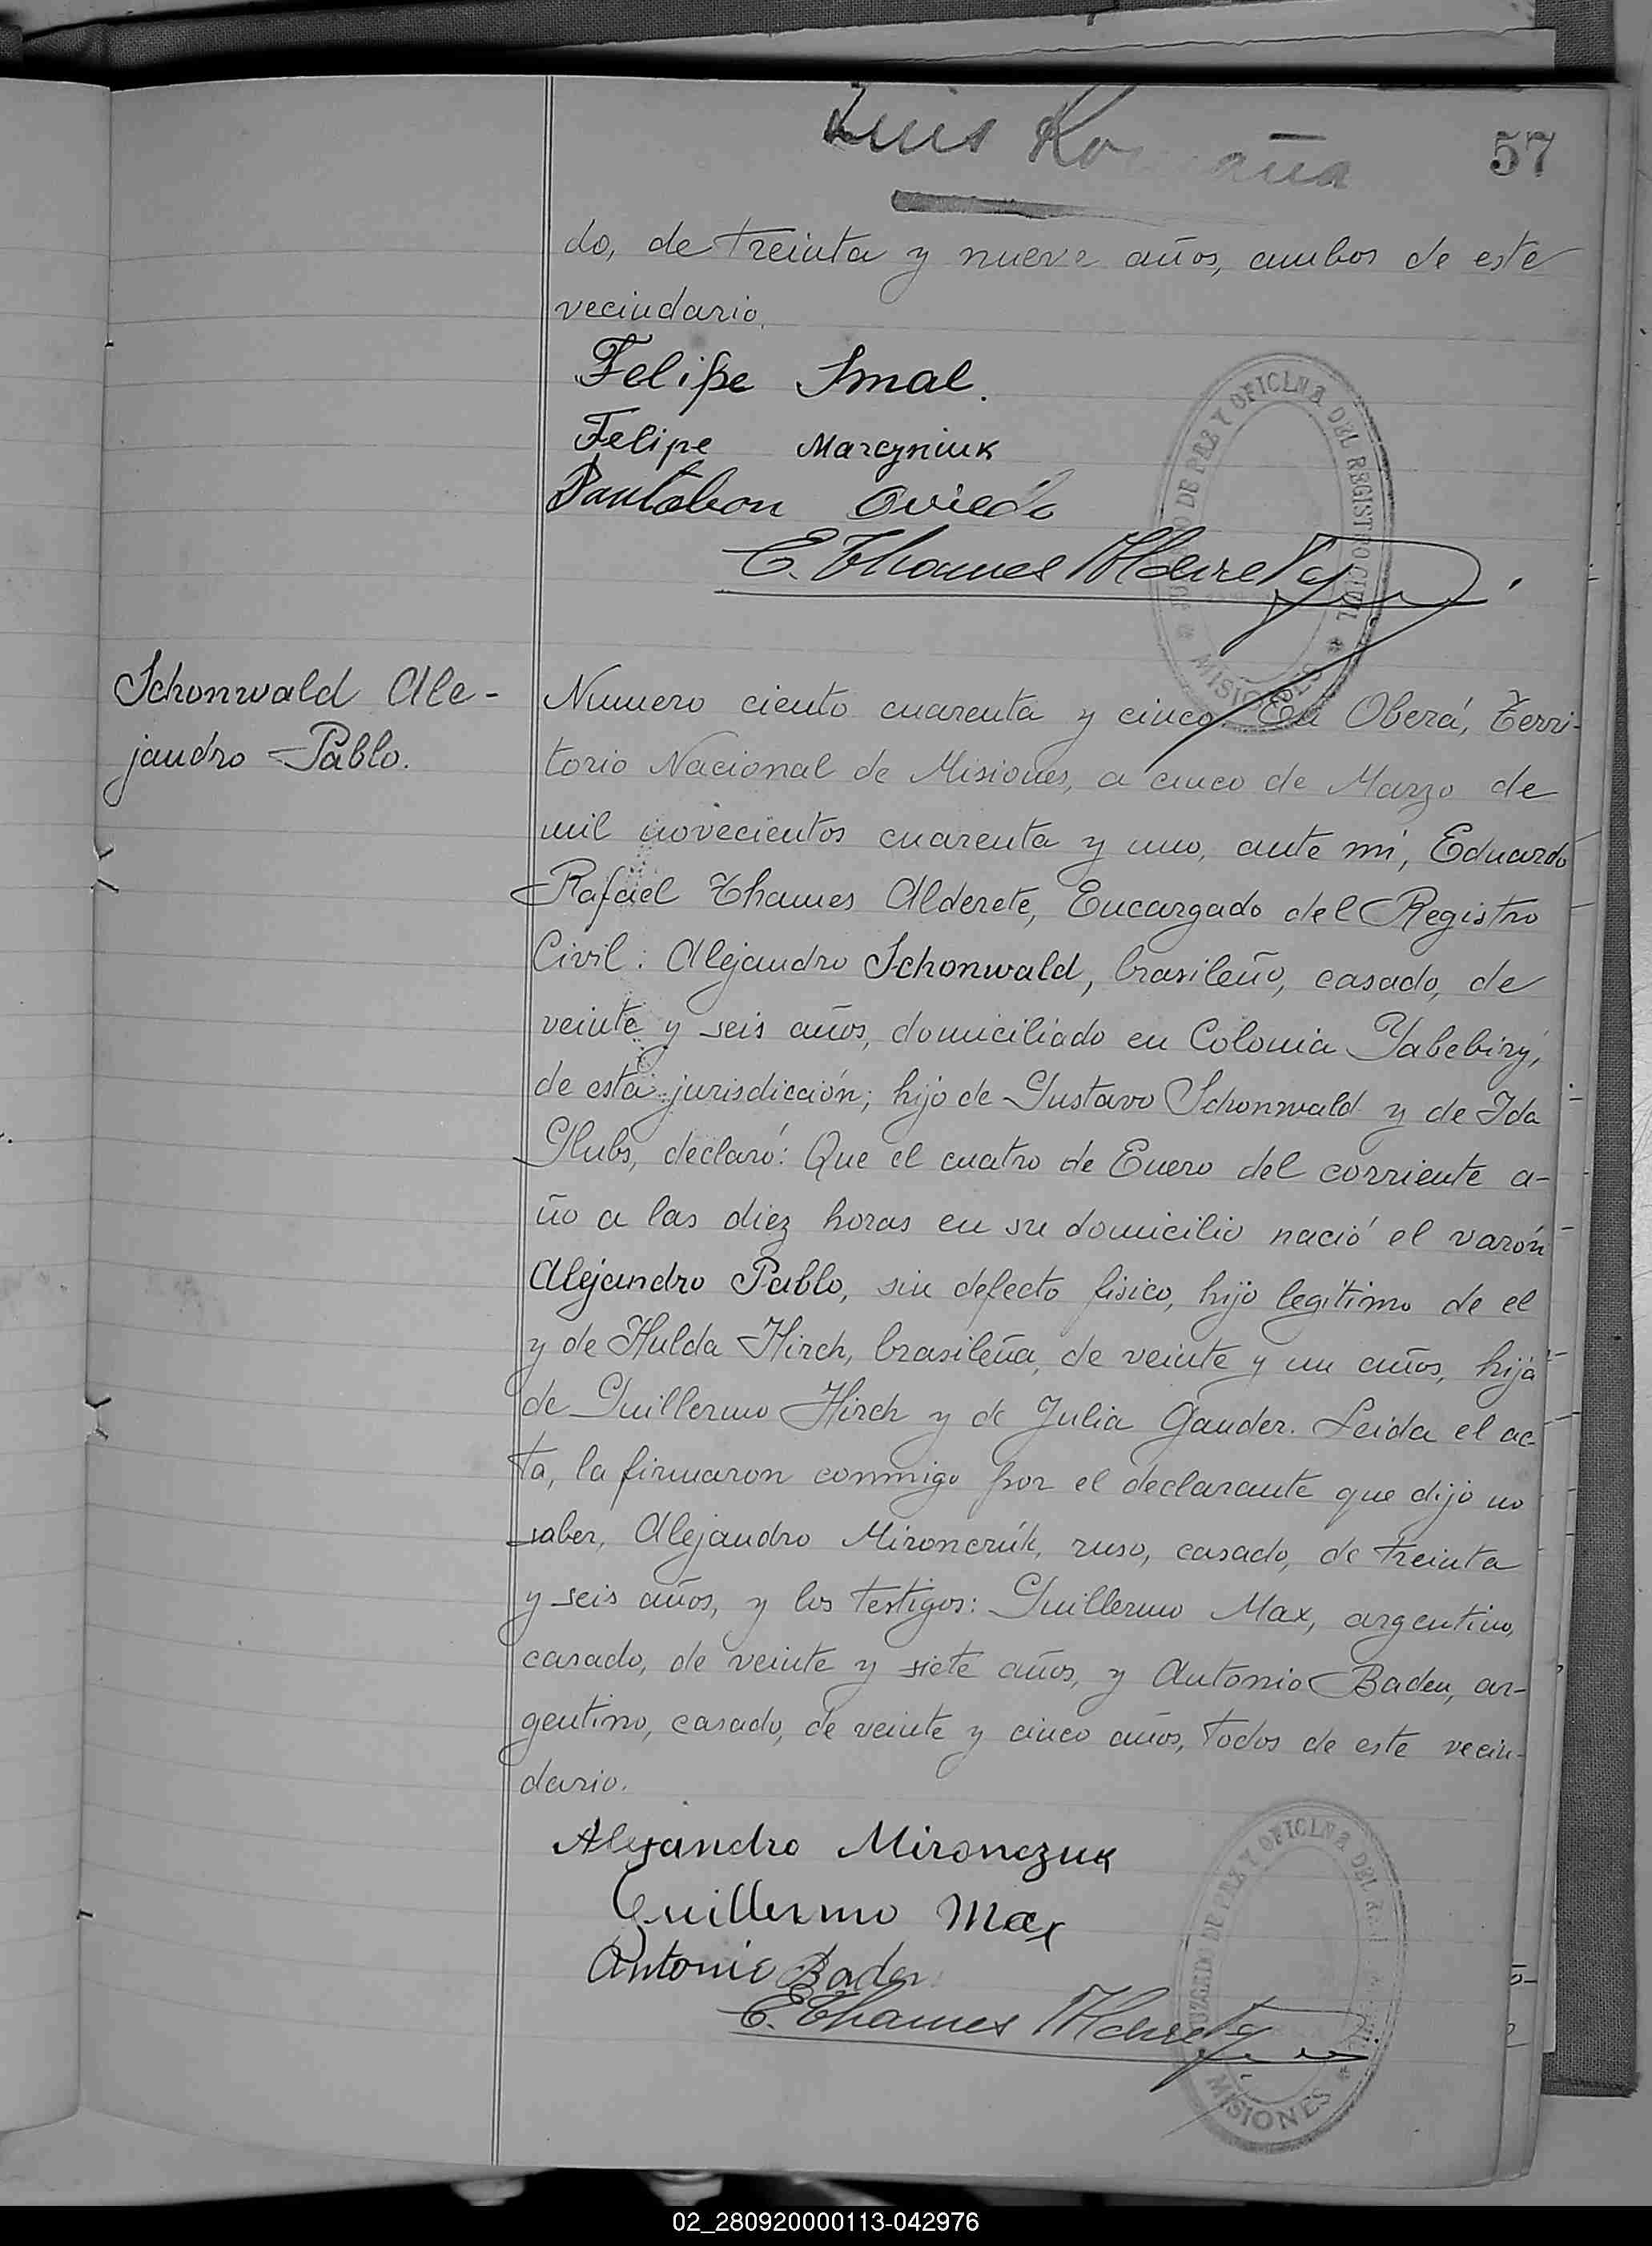 Luis
57
do, de treinta y nueve años, ambos de este
vecindario.
Felipe Smal.
Felipe Marcyniuk
Pantaleon Oviedo
E. Thames Alderete
JUZGADO DE PAZ Y OFICINA DEL REGISTRO CIVIL
MISIONES
Schonwald Ale-
jandro Pablo.
Numero ciento cuarenta y cinco En Oberá, Terri-
torio Nacional de Misiones, a cinco de Marzo de
mil novecientos cuarenta y uno, ante mi, Eduardo
Rafael Thames Alderete, Encargado del Registro
Civil: Alejandro Schonwald, brasileño, casado, de
veinte y seis años, domiciliado en Colonia Yabebiry,
de esta jurisdicción; hijo de Gustavo Schonwald y de Ida
declaró: Que el cuatro de Enero del corriente a-
ño a las diez horas en su domicilio nació el varón
Alejandro Pablo, sin defecto fisico, hijo legitimo de el
y de Hulda Hirch, brasileña, de veinte y un años, hija
de Guillermo Hirch y de Julia Gander. Leida el ac-
ta, la firmaron conmigo por el declarante que dijo no
saber, Alejandro Mironczúk, ruso, casado, de treinta
y seis años, y los testigos: Guillermo Max, argentino,
casado, de veinte y siete años, y Antonio Baden, ar-
gentino, casado, de veinte y cinco años, todos de este vecin-
dario.
Alejandro Mironczuk
Guillermo Max
Antonio Baden
E. Thames Alderete
JUZGADO DE PAZ Y OFICINA DEL
MISIONES
02_280920000113-042976